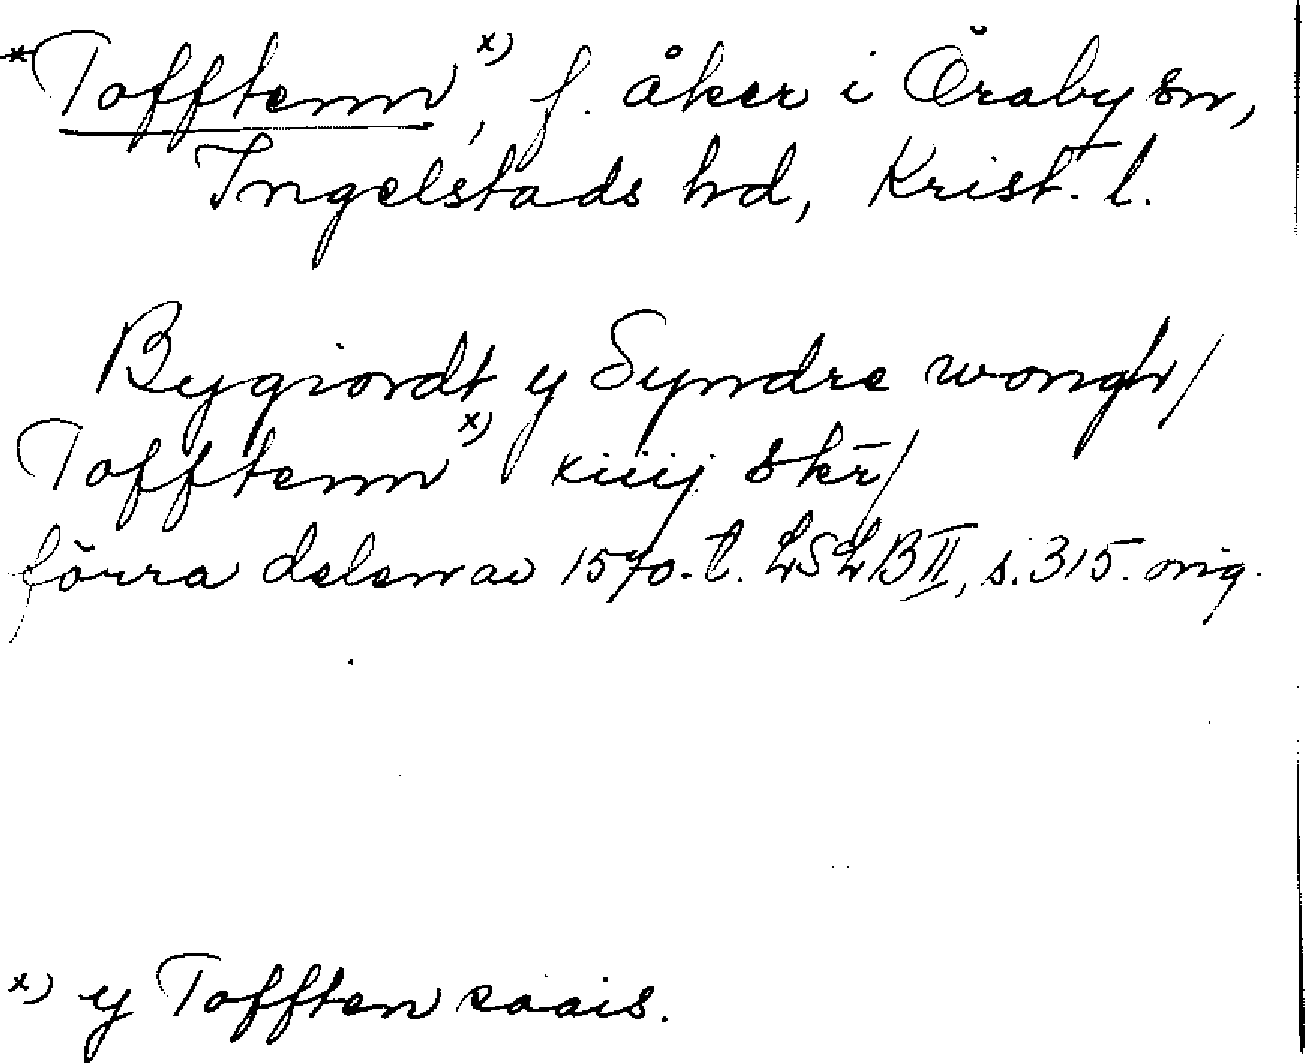 *Tofftenn x), f. åker i Öraby sn,
Ingelstads hd, Krist. l.
Bygiordt y Syndre wongh/
Tofftenn x) xiiij skr/
förra delen av 1570-t. LSLB II, s. 315. orig.
x) y Tofften